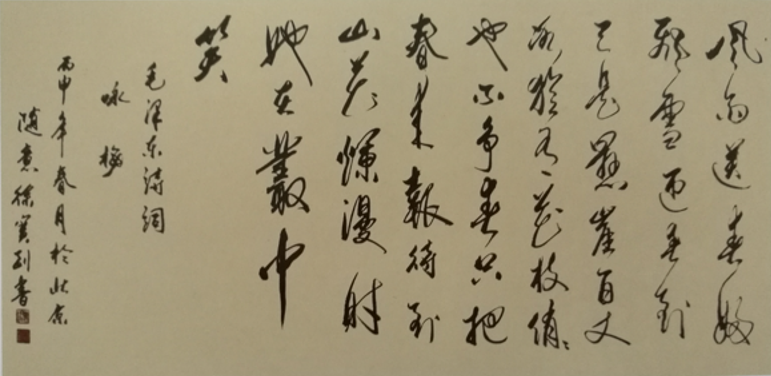 風雨送春歸
飛雪迎春到
已是懸崖百丈
冰猶有花枝俏
也不争春只把
春来報待到
山花爛漫時
她在叢中
笑
毛泽东诗词
咏梅
丙申年春月於北京
随意徐 書